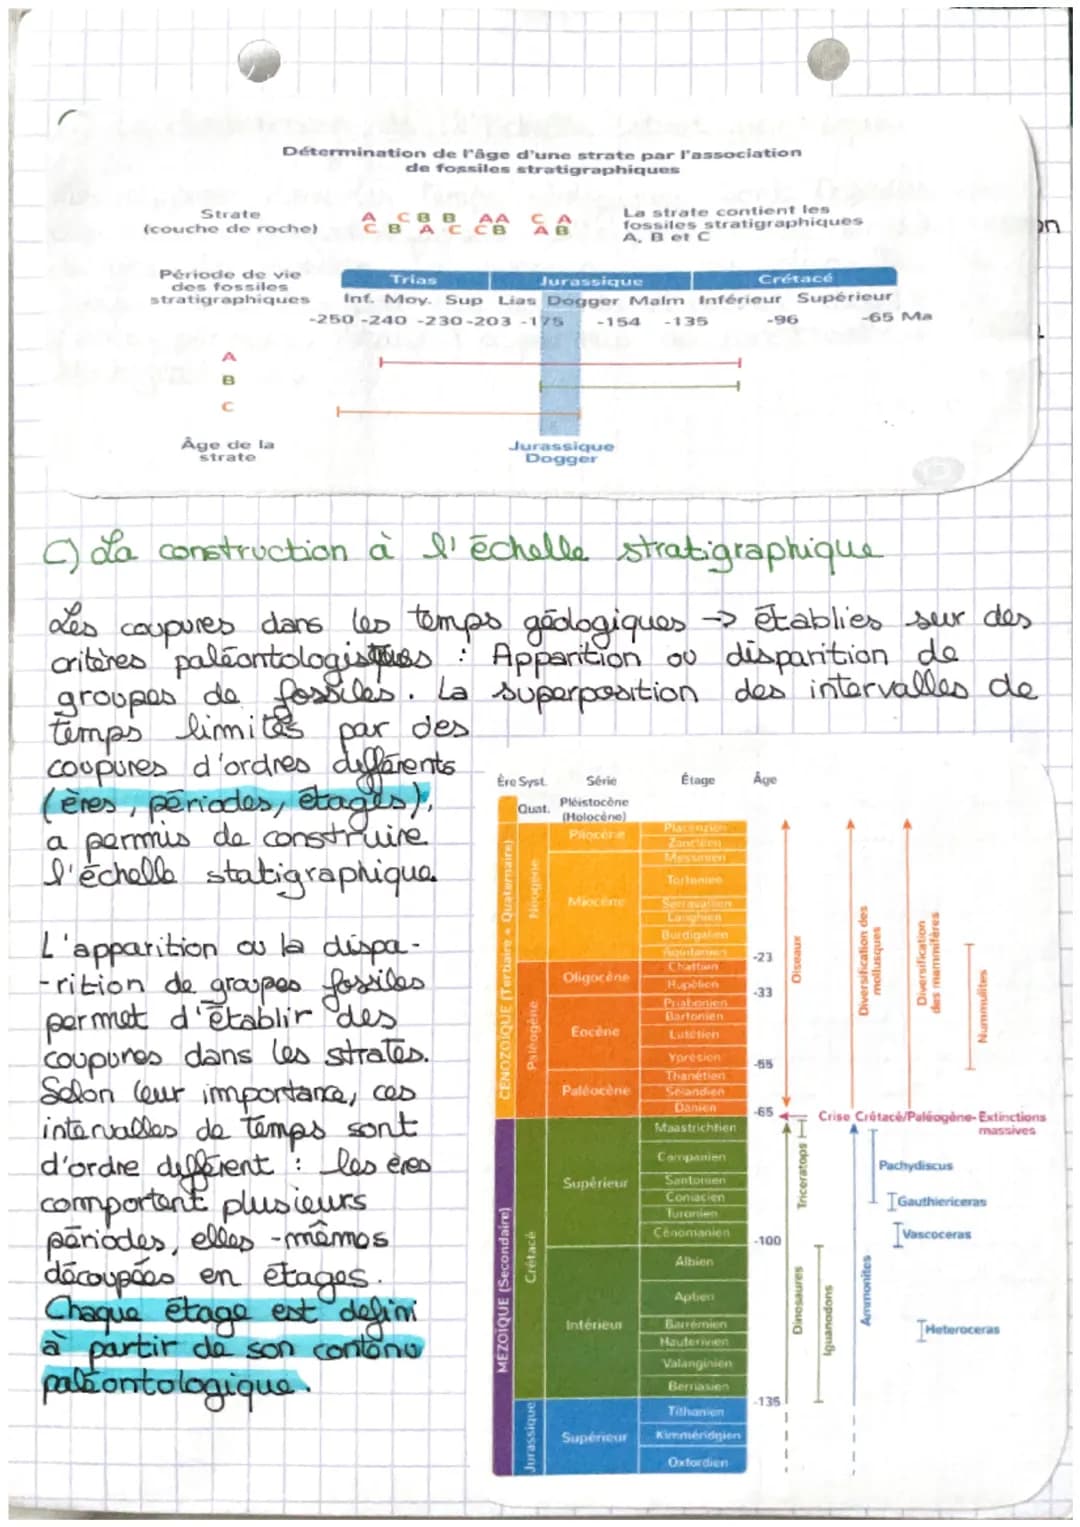 Détermination de l'âge d'une strate par l'association
de fossiles stratigraphiques
Strate
(couche de roche)
A C B B A A C A
C B A C C B A B
La strate contient les
fossiles stratigraphiques
A, B et C
Période de vie
des fossiles
stratigraphiques
Trias Jurassique Crétacé
Inf. Moy. Sup Lias Dogger Malm Inférieur Supérieur
-250 -240 -230 -203 -175 -154 -135 -96 -65 Ma
A
B
C
Âge de la
strate
Jurassique
Dogger
on
C) La construction à l'échelle stratigraphique
Les coupures dans les temps géologiques -> établies sur des
critères : Apparition ou disparition de
groupes de fossiles. La superposition des intervalles de
temps limités par des
coupures d'ordres différents
(ères, périodes, étages),
a permis de construire
l'échelle statigraphique.
L'apparition ou la dispa-
-rition de groupes fossiles
permet d'établir des
coupures dans les strates.
Selon leur importance, ces
intervalles de temps sont
d'ordre différent : les ères
comportent plusieurs
périodes, elles-mêmes
découpées en étages.
Chaque étage est défini
à partir de son contenu
paléontologique.
Ère Syst. Série Étage Âge
CÉNOZOÏQUE (Tertiaire + Quaternaire)
MÉZOÏQUE (Secondaire)
Quat.
Néogène
Paléogène
Crétacé
Jurassique
Pléistocène
(Holocène)
Pliocène
Miocène
Oligocène
Eocène
Paléocène
Supérieur
Intérieur
Supérieur
Plaisancien
Zancléen
Messinien
Tortonien
Serravallien
Langhien
Burdigalien
Aquitanien
Chattien
Rupélien
Priabonien
Bartonien
Lutétien
Yprésien
Thanétien
Sélandien
Danien
Maastrichtien
Campanien
Santonien
Coniacien
Turonien
Cénomanien
Albien
Aptien
Barrémien
Hauterivien
Valanginien
Berriasien
Tithonien
Kimméridgien
Oxfordien
-23
-33
-55
-65
-100
-135
Oiseaux
Diversification des
mollusques
Diversification
des mammifères
Nummulites
Crise Crétacé/Paléogène-Extinctions
massives
Triceratops
Dinosaures
Iguanodons
Ammonites
Pachydiscus
Gauthiericeras
Vascoceras
Heteroceras